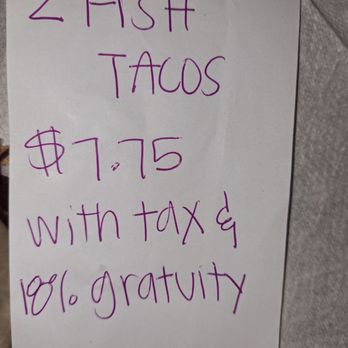 2 FISH
TACOS
$7.75
with tax &
18% gratuity